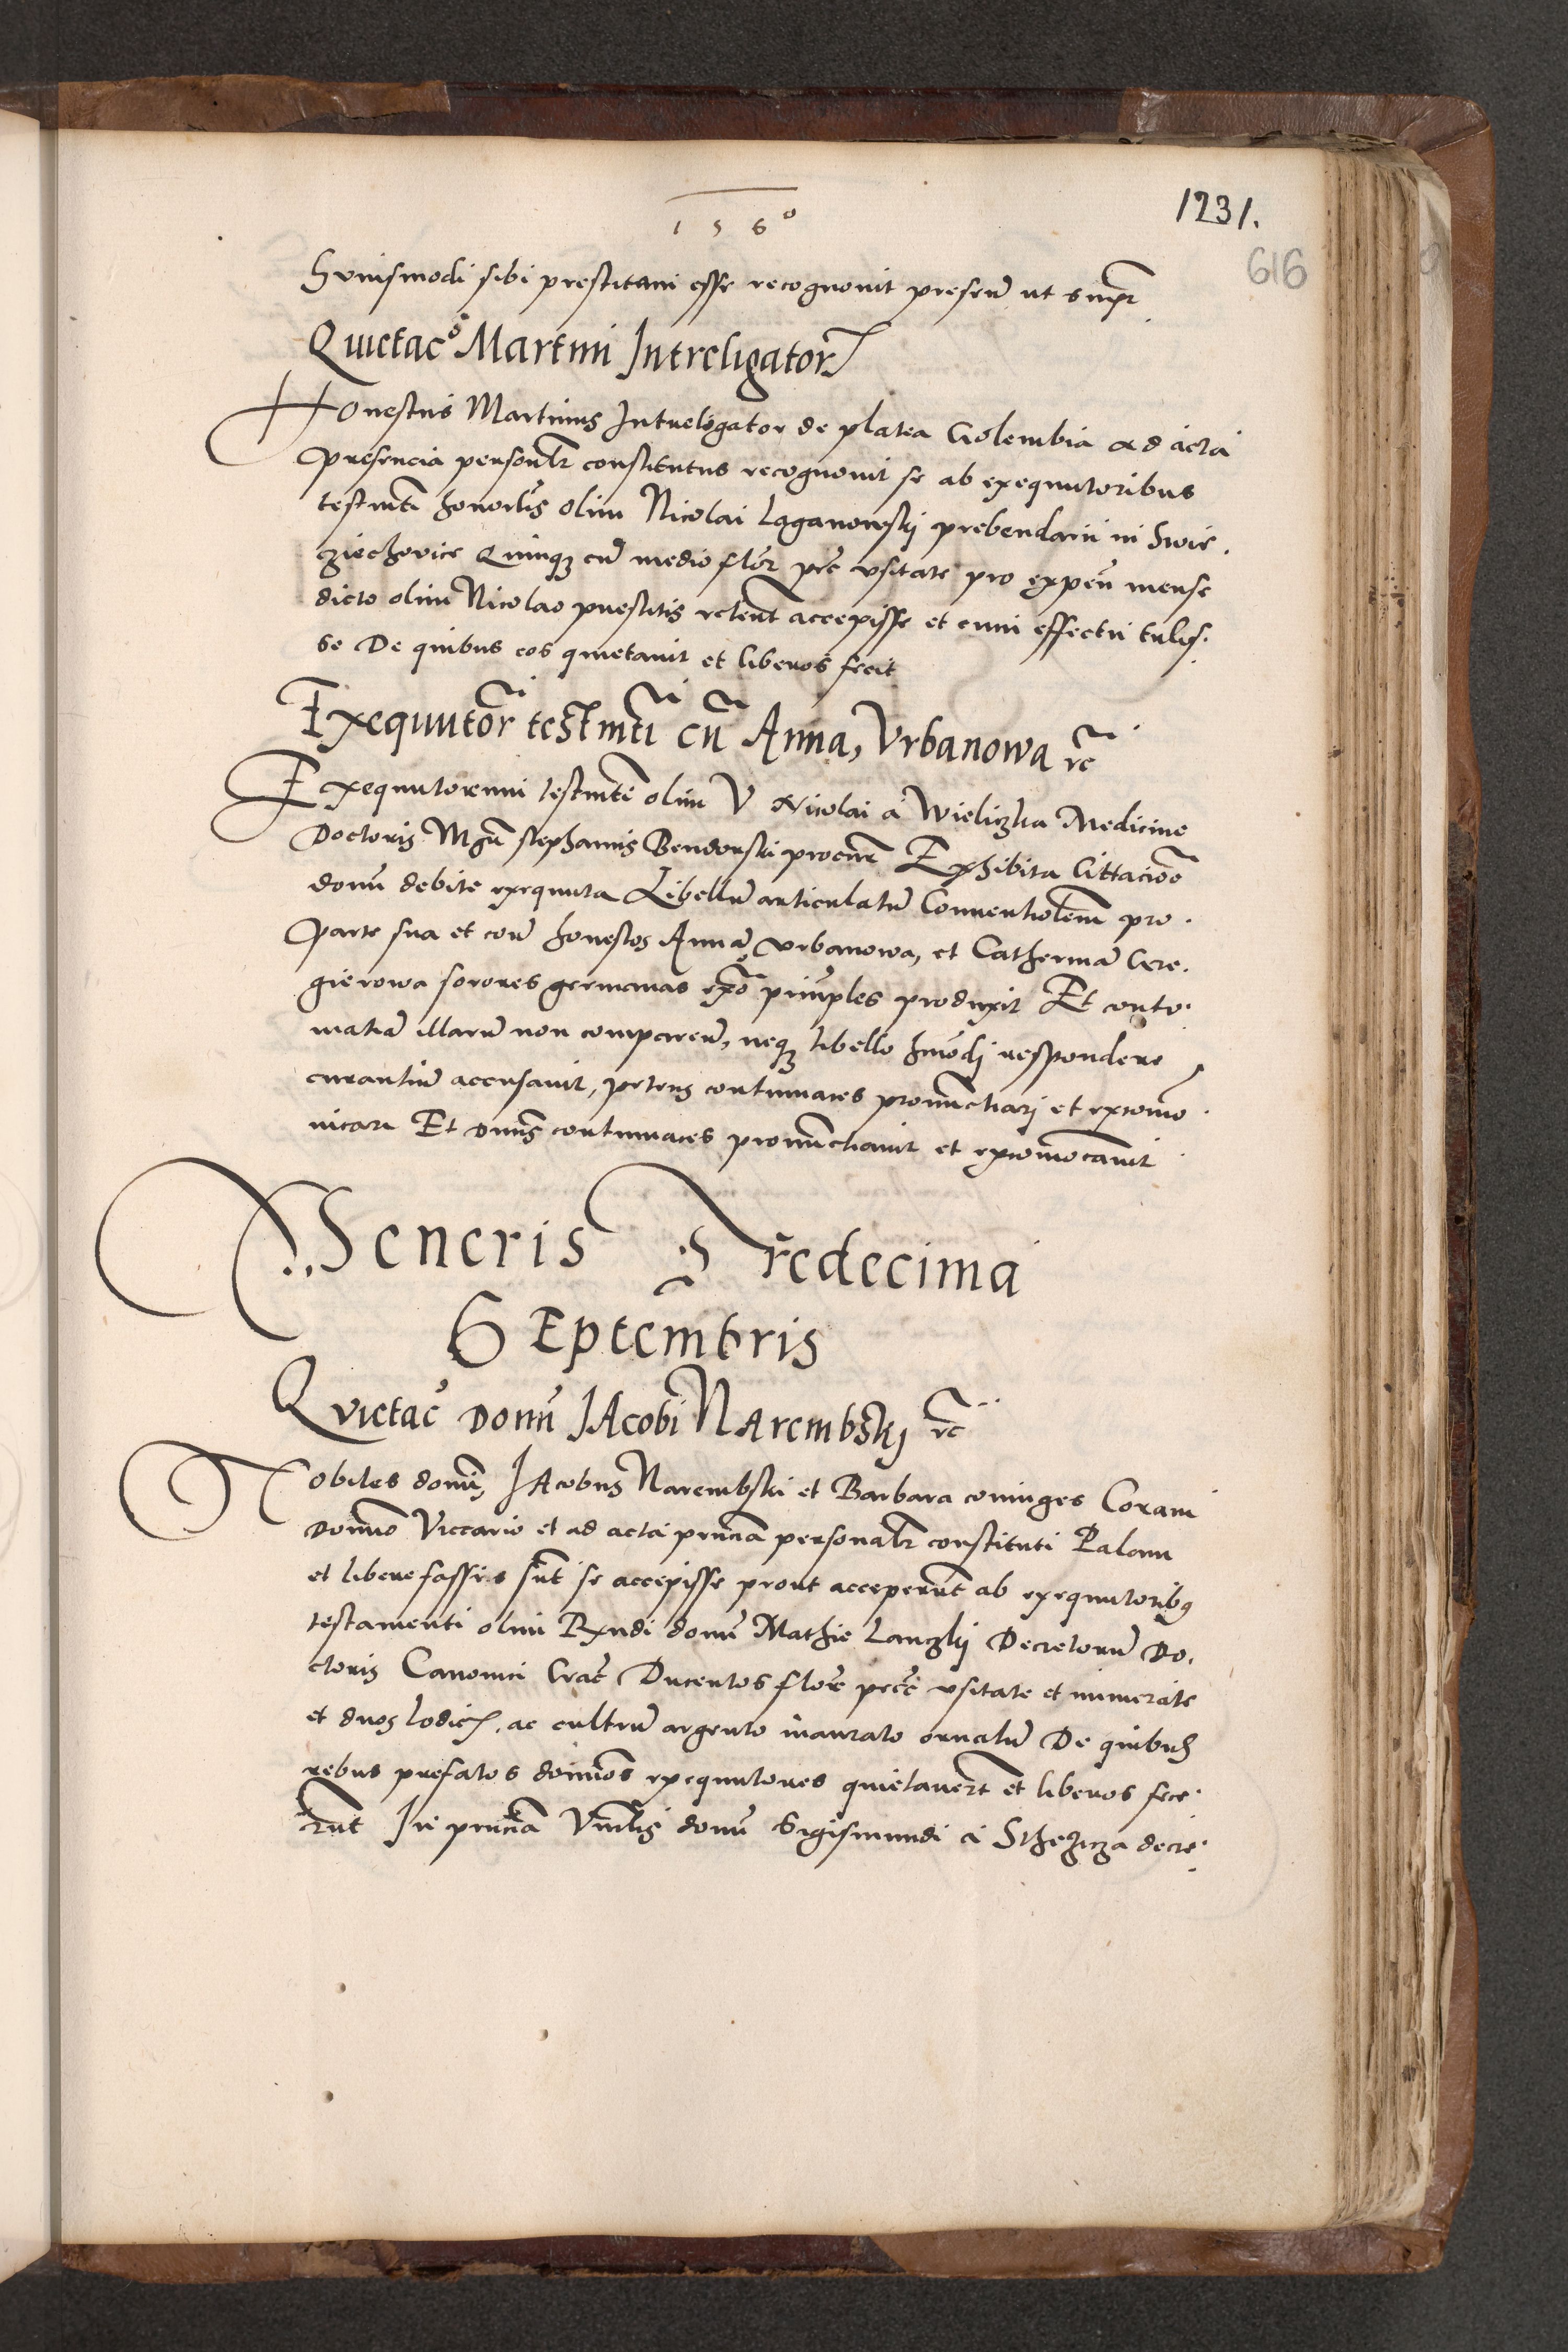 1560
1231.
616
Huiusmodi sibi prestitam esse recognouit presen̄ ut supr̄
Quietac̄o Martini Intreligator̄
Honestus Martinus Intreligator de platea Golembia ad acta
presencia personal̄r constitutus recognouit se ab exequutoribus
testmti honorl̄is olim Nicolai Laganowskj prebendarii in Swie.
ziechovice quinqꝫ cū medio flōr pēc vsitate pro expeñ mense
dicto olim Nicolao prestitis reteñt accepisse et cum effectu tulis.
se De quibus eos quietauit et liberos fecit
Exequutōr testmti cū Anna, Vrbanowa rc̄
Exequutorum testmti olim V Nicolai a Wieliczka Medicine
Doctoris Mgr̄ Stephanus Bendonski procur̄ Exhibita Cittacioō
domī debite exequuta Libellū articulatū Conuentiolem pro.
parte sua et con̄ honestos Annā Vrbanowa, et Catherinā Gre.
gierowa sorores germanas exō prin̄ples produxit Et contu.
matiā illarū non comparen̄, neqꝫ libello hmōdj respondere
curantiū accusauit, petens contumaces pronunctiarj et excomo.
nicari Et Dnus contumaces pronunctiauit et excomōcauit
Veneris Tredecima
SEptembris
Quietac̄ Domī IAcobi NArembskj rc̄
Nobiles domī, IAcobus Narembski et Barbara coniuges Coram
Domīno Viccario et ad acta prn̄cia personal̄r constituti Palam
et libere fassi sūt se accepisse prout acceperūt ab exequutoribꝫ
testamenti olim Rx̄ndi domī Mathie Lanczkj Decretorū Do.
ctoris Canonici Crac̄ Ducentos flōr pēc̄ vsitate et numerate
et duos lodic̄, ac cultrū argento inaurato ornatū De quibus
rebus prefatos domīnos exequutores quietauer̄t et liberos fece.
rūt In prn̄cia Vnrl̄is domī Sigismundi a Sthezicza decre.